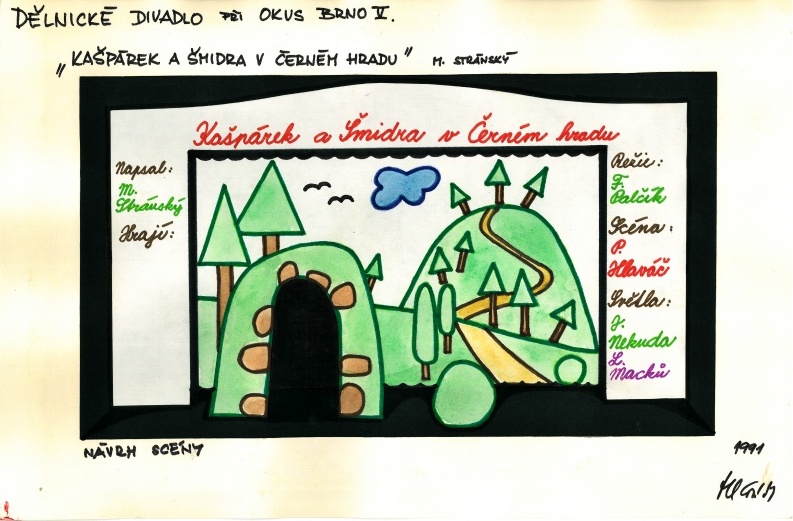 DĚLNICKÉ DIVADLO PŘI OKUS BRNO V.
„KAŠPÁREK A ŠMIDRA V ČERNÉM HRADU" M. STRÁNSKÝ
Kašpárek a Šmidra v Černém hradu
Napsal:
M.
Stránský
Hrají:
Režie:
F.
Palčík
Scéna:
P.
Hlaváč
Světla:
J.
Nekuda
L.
Macků
NÁVRH SCÉNY
1991